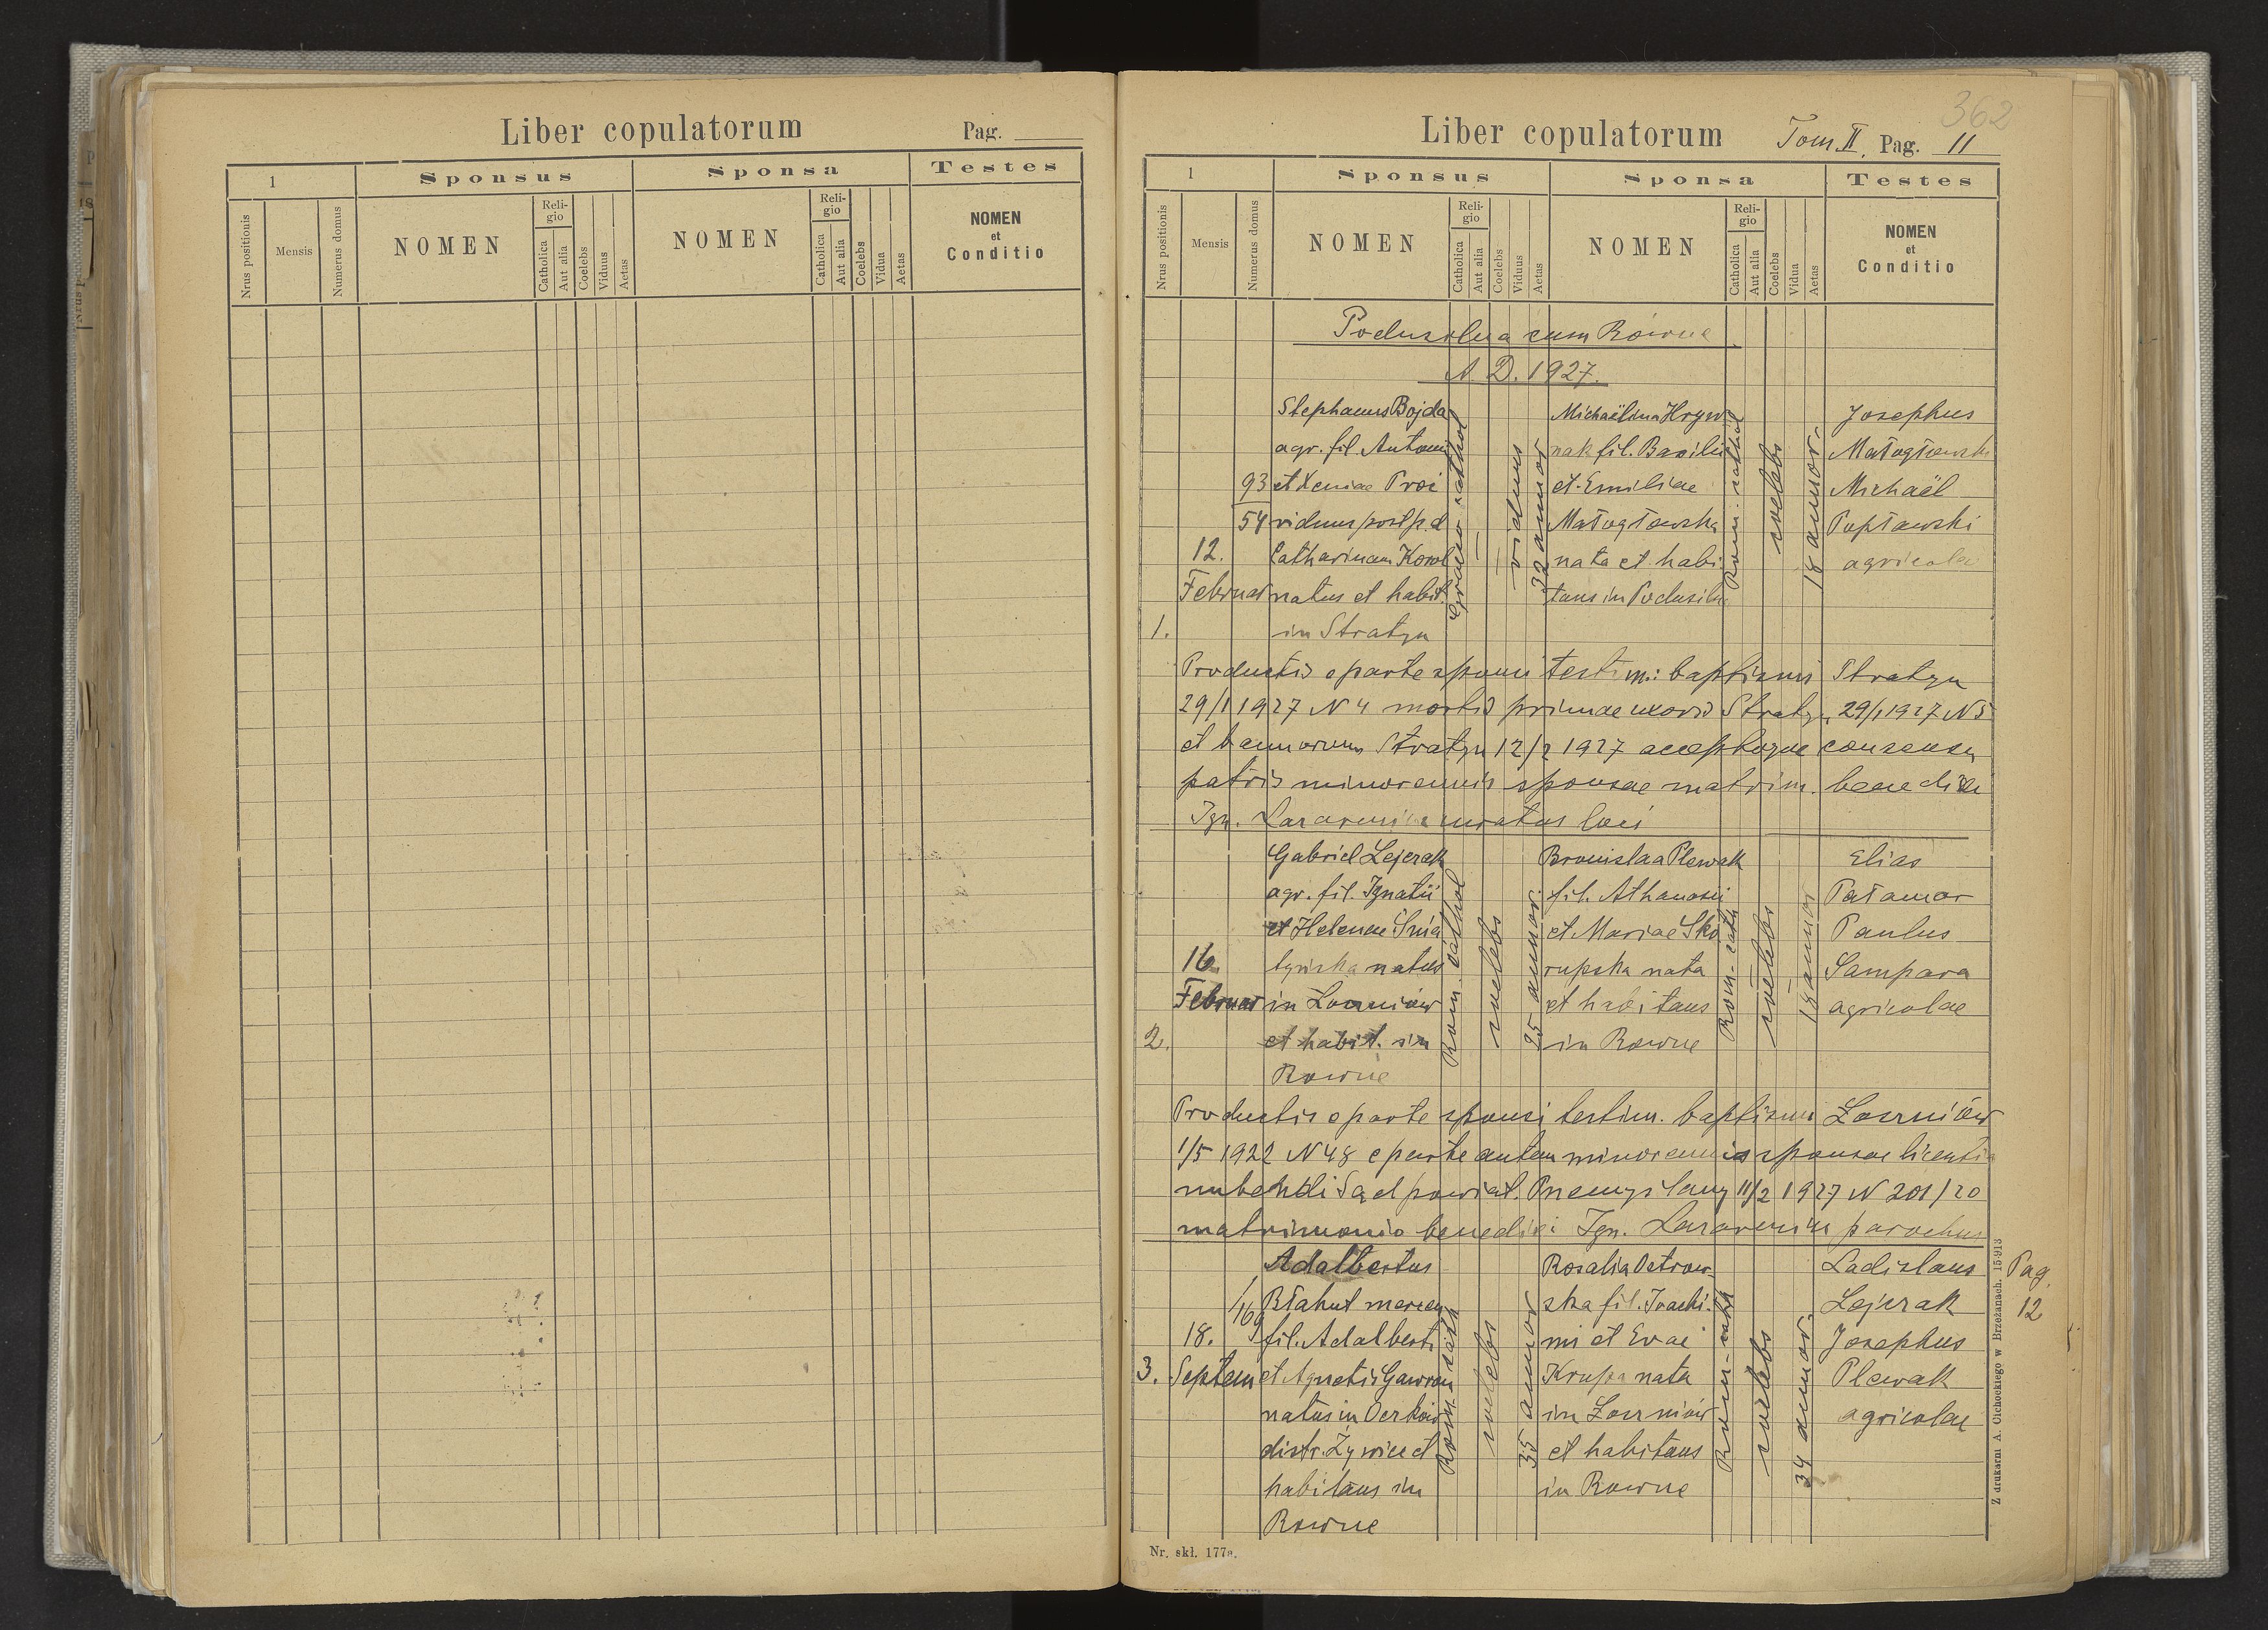 Liber copulatorum Pag.
1 Sponsus Sponsa Testes
Nrus positionis Mensis Numerus domus NOMEN Religio Catholica Aut alia Coelebs Viduus Aetas NOMEN Religio Catholica Aut alia Coelebs Vidua Aetas NOMEN et Conditio
362
Liber copulatorum Tom II. Pag. 11
1 Sponsus Sponsa Testes
Nrus positionis Mensis Numerus domus NOMEN Religio Catholica Aut alia Coelebs Viduus Aetas NOMEN Religio Catholica Aut alia Coelebs Vidua Aetas NOMEN et Conditio
Podusilna cum Rowne
A D. 1927.
Stephanus Bojda Michaëlina Hryw Josephus
agr. fil. Antonii nak fil. Basilii Małogłowski
93 et Xeniae Proi et Emiliae Michaël
54 viduus post p. d Małogłowska Popławski
12. Catharinam Korol nata et habi agricola
Februar natus et habit. tans in Podusilna
1. in Stratyn
Graeco cathol viduus 32 annor Rom. cathol coelebs 18 annor.
Productis e parte sponsi testim: baptismi Stratyn
29/1 1927 N 4 mortis primae uxoris Stratyn 29/1 1927 N 5
et bannorum Stratyn 12/2 1927 acceptoque consensu
patris minorennis sponsae matrim. benedixi
Ign. curatus loci
Gabriel Lejczak Bronislaa Plewak Elias
agr. fil. Ignatii fil. Athanasii Patamar
et Helenae Śnia et Mariae Sko Paulus
16. tyńska natus rupska nata Sampara
Februar in Łoszniów et habitans agricolae
2. et habit. in in Rowne
Rowne
Rom. cathol coelebs 25 annor. Rom. cath coelebs 18 annor
Productis e parte sponsi testim. baptismi Łoszniów
1/5 1922 N 48 e parte autem minorennis sponsae licentia
nubendi Sąd powiat. Przemyślany 11/2 1927 N 201/20
matrimonio benedixi Ign. parochus
Adalbertus Rosalia Ostrow- Ladislaus Pag.
Błahut ska fil. Joachi- Lejczak 12
169
18. fil. Adalberti mi et Evae Josephus
3. Septem et Agnetis Gawron Krupa nata Plewak
natus in in Łoszniów agricolae
distr. Żywiec et et habitans
habitans in in Rowne
Rowne
Rom. cath coelebs 35 annor Rom. cath coelebs 34 annor.
Z drukarni A. Cichockiego w Brzeżanach. 15·913
Nr. skł. 177a.